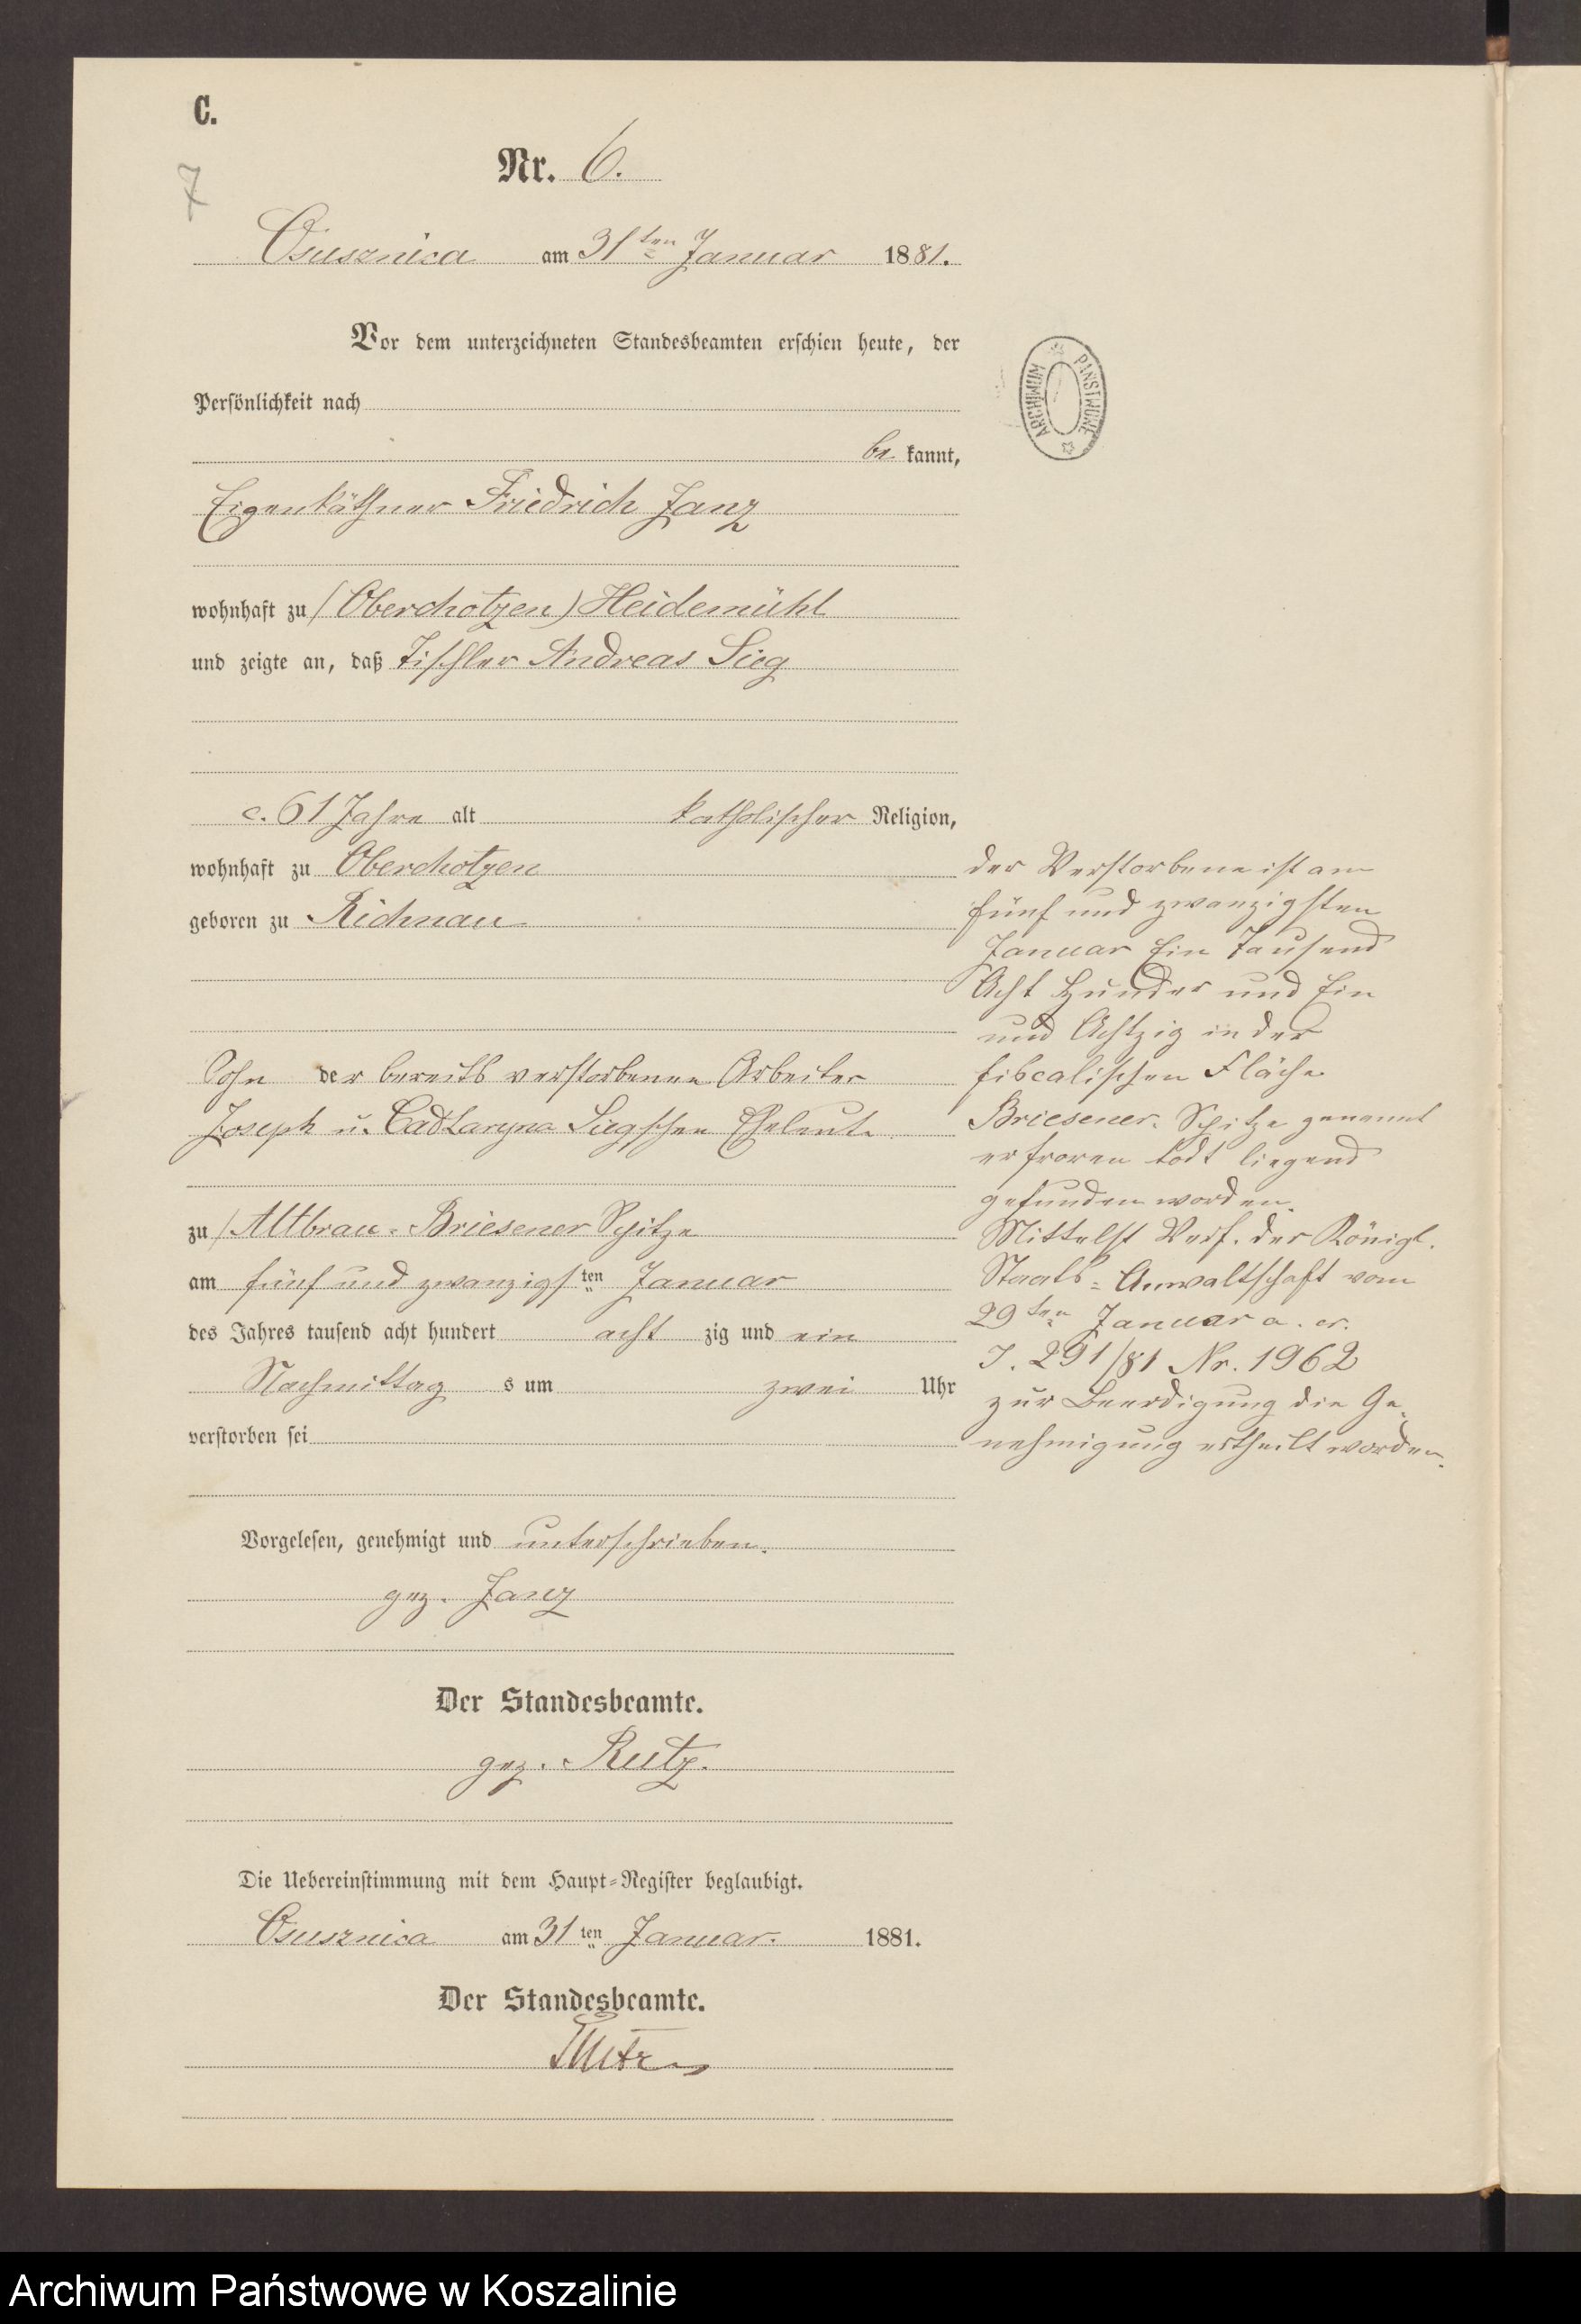 C.
7
Nr. 6.
Osusznica am 31ten Januar 1881.
Vor dem unterzeichneten Standesbeamten erschien heute, der
Persönlichkeit nach
be kannt,
Eigenkäthner Friedrich Janz
wohnhaft zu (Oberchotzen) Heidemühl
und zeigte an, daß Tischler Andreas Sieg
c. 61 Jahre alt katholischer Religion,
wohnhaft zu Oberchotzen
geboren zu Richnau
Sohn der bereits verstorbenen Arbeiter
Joseph u. Cadtaryna Siegschen Eheleute
zu Altbrau-Briesener Spitze
am fünf und zwanzigsten Januar
des Jahres tausend acht hundert acht zig und ein
Nachmittag s um zwei Uhr
verstorben sei
der Verstorbene ist am
fünf und zwanzigsten
Januar Ein Tausend
Acht Hunder und Ein
und Achtzig in der
fiscalischen Fläche
Briesener-Spitze genannt
erfroren todt liegend
gefunden worden.
Mittelst Verf. der Königl.
Staats-Anwaltschaft vom
29ten Januar a. cr.
J. 291/81 Nr. 1962
zur Beerdigung die Ge-
nehmigung ertheilt worden.
Vorgelesen, genehmigt und unterschrieben.
gez. Janz
Der Standesbeamte.
gez. Rutz.
Die Uebereinstimmung mit dem Haupt-Register beglaubigt.
Osusznica am 31ten Januar. 1881.
Der Standesbeamte.
Rutz
ARCHIWUM PAŃSTWOWE
Archiwum Państwowe w Koszalinie